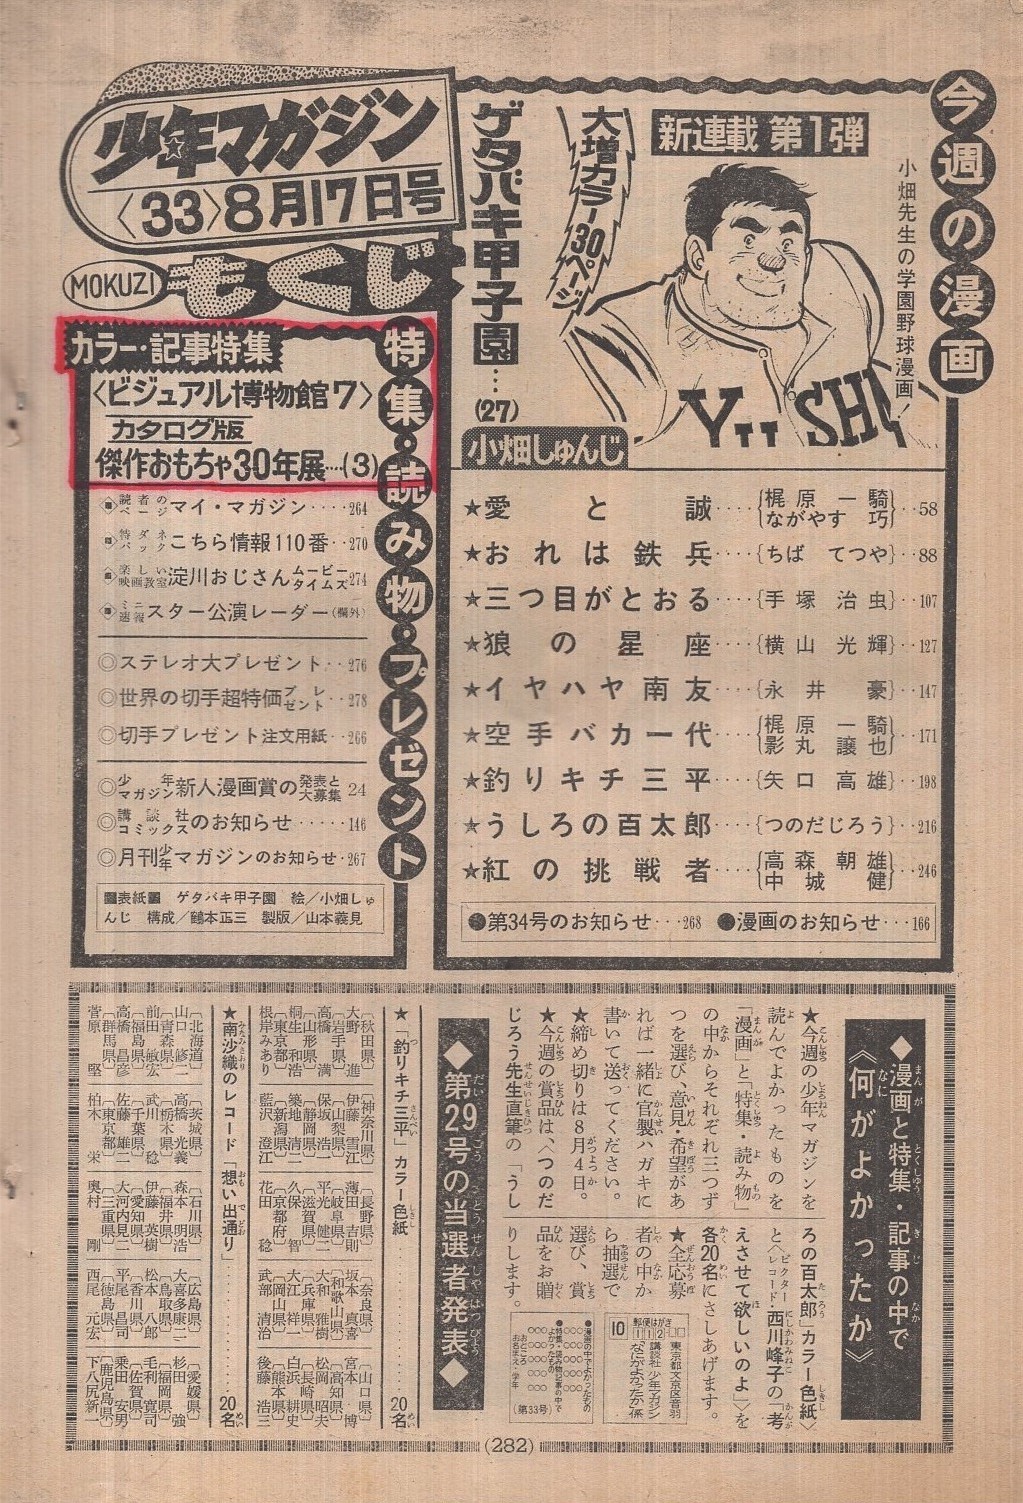 少年マガジン
〈33〉8月17日号
MOKUZI もくじ
今週の漫画
小畑先生の学園野球漫画!
新連載 第1弾
大増カラー30ページ
ゲタバキ甲子園…(27)
小畑しゅんじ
★愛と誠····{梶原一騎 ながやす巧}··58
★おれは鉄兵····{ちばてつや}··88
★三つ目がとおる····{手塚治虫}··107
★狼の星座····{横山光輝}··127
★イヤハヤ南友····{永井豪}··147
★空手バカ一代····{梶原一騎 影丸譲也}··171
★釣りキチ三平····{矢口高雄}··198
★うしろの百太郎····{つのだじろう}··216
★紅の挑戦者····{高森朝雄 中城健}··246
●第34号のお知らせ···268 ●漫画のお知らせ···166
特集・読み物・プレゼント
カラー・記事特集
〈ビジュアル博物館7〉
カタログ版
傑作おもちゃ30年展…(3)
読者のページ マイ・マガジン····264
特ダネパック こちら情報110番··270
楽しい映画教室 淀川おじさんムービータイムズ274
ミニ速報 スター公演レーダー(欄外)
◎ステレオ大プレゼント··276
◎世界の切手超特価プレゼント··278
◎切手プレゼント注文用紙··266
◎少年マガジン新人漫画賞の発表と大募集 24
◎講談社コミックスのお知らせ·····146
◎月刊少年マガジンのお知らせ·267
■表紙■ ゲタバキ甲子園 絵/小畑しゅ
んじ 構成/鶴本正三 製版/山本義見
◆漫画と特集・記事の中で
《何がよかったか》
★今週の少年マガジンを
読んでよかったものを
「漫画」と「特集・読み物」
の中からそれぞれ三つず
つを選び、意見・希望があ
れば一緒に官製ハガキに
書いて送ってください。
★締め切りは8月4日。
★今週の賞品は、〈つのだ
じろう先生直筆の「うし
ろの百太郎」カラー色紙〉
と〈ビクターレコード・西川峰子の「考
えさせて欲しいのよ」〉を
各20名にさしあげます。
★全応募
者の中か
ら抽選で
選び、賞
品をお贈
りします。
郵便はがき
112
10
東京都文京区音羽
講談社 少年マガジン
なにがよかったか係
●漫画の中でよかったもの
○○○○○
○○○○○
○○○○○
●特集・読み物記事の中で
よかったもの
○○○○○
○○○○○
○○○○○
おところ
お名まえ・学年
(第33号)
◆第29号の当選者発表◆
★「釣りキチ三平」カラー色紙……20名
〔秋田県〕
大野 進
〔岩手県〕
高橋 満
〔山形県〕
桐生和浩
〔東京都〕
根岸みあり
〔神奈川県〕
伊藤雪江
〔山梨県〕
保坂浩一
〔静岡県〕
築地清二
〔新潟県〕
藍沢澄江
〔長野県〕
薄田吉則
〔岐阜県〕
平光健二
〔滋賀県〕
久保 智
〔京都府〕
花田 稔
〔奈良県〕
坂本真喜
〔和歌山県〕
大和雅樹
〔兵庫県〕
大江祥一
〔岡山県〕
武部清治
〔山口県〕
宮本 博
〔高知県〕
松岡昭夫
〔長崎県〕
白浜耕史
〔熊本県〕
後藤浩三
★南沙織のレコード「想い出通り」……20名
〔北海道〕
山口修二
〔青森県〕
前田敏宏
〔福島県〕
高橋昌彦
〔群馬県〕
菅原 堅
〔茨城県〕
高橋光義
〔千葉県〕
武川 稔
佐藤雄二
〔東京都〕
柏木 栄
〔石川県〕
森本明浩
〔福井県〕
伊藤英樹
〔愛知県〕
大河内見二
〔三重県〕
奥村 剛
〔広島県〕
大喜多康二
〔鳥取県〕
松本八郎
〔香川県〕
平尾昌司
〔徳島県〕
西尾元宏
〔愛媛県〕
杉田 強
〔福岡県〕
毛利寛司
〔佐賀県〕
乗田安男
〔鹿児島県〕
下八尻新一
(282)